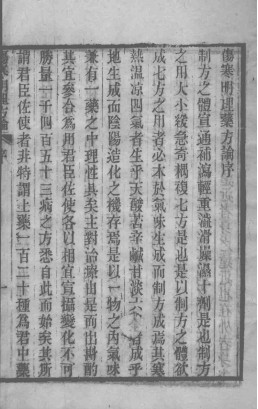 傷寒明理藥方論序
制方之體宣通補瀉輕重澁滑燥濕十劑是也制方
之用大小緩急奇耦複七方是也是以制方之體欲
成七方之用者必本於氣味生成而制方成焉其寒
熱溫涼四氣者生乎天酸苦辛鹹甘淡六味者成乎
地生成而陰陽造化之機存焉是以一物之内氣味
兼有一藥之中理性具矣主對治療由是而出斟酌
其宜參合為用君臣佐使各以相宜宣攝變化不可
勝量一千四百五十三病之方悉自此而始矣其所
謂君臣佐使者非特謂上藥一百二十種為君中藥